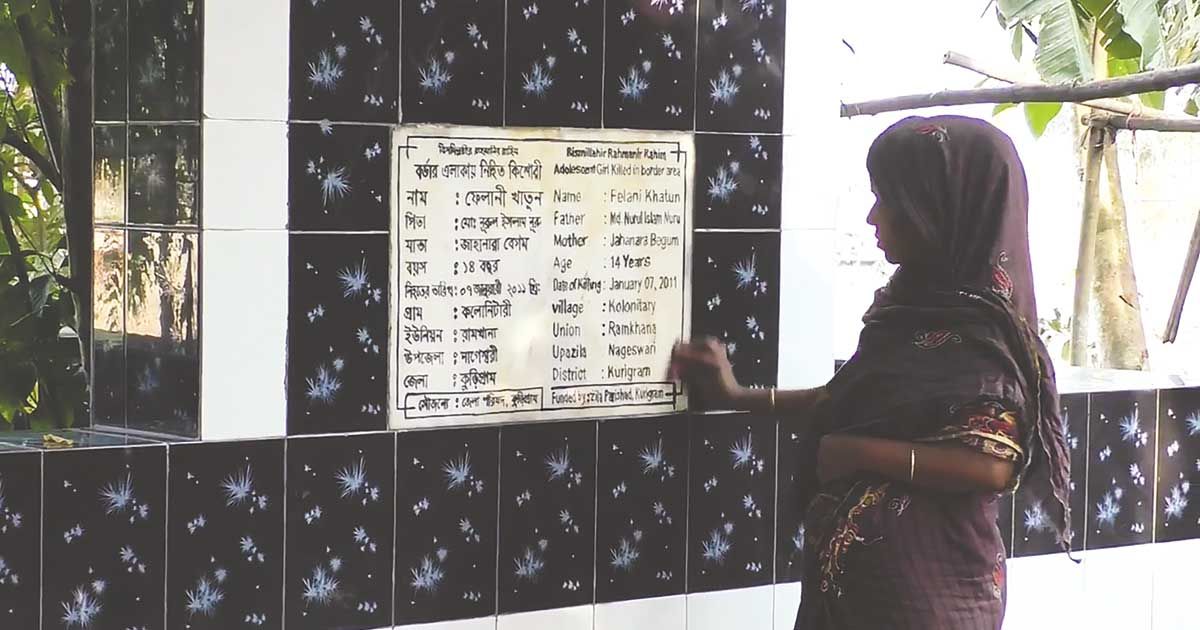 বিসমিল্লাহির রাহমানির রাহিম
বর্ডার এলাকায় নিহিত কিশোরী
নাম : ফেলানী খাতুন
পিতা : মোঃ নুরুল ইসলাম নুরু
মাতা : জাহানারা বেগম
বয়স : ১৪ বছর
নিহতের তারিখ : ০৭ জানুয়ারী ২০১১ খ্রি
গ্রাম : কলোনিটারী
ইউনিয়ন : রামখানা
উপজেলা : নাগেশ্বরী
জেলা : কুড়িগ্রাম
সৌজন্যে : জেলা পরিষদ, কুড়িগ্রাম
Bismillahir Rahmanir Rahim
Adolescent Girl Killed in border area
Name : Felani Khatun
Father : Md. Nurul Islam Nuru
Mother : Jahanara Begum
Age : 14 Years
Date of Killing : January 07, 2011
village : Kolonitary
Union : Ramkhana
Upazila Nageswari
District : Kurigram
Funded by : Zila Parishad, Kurigram